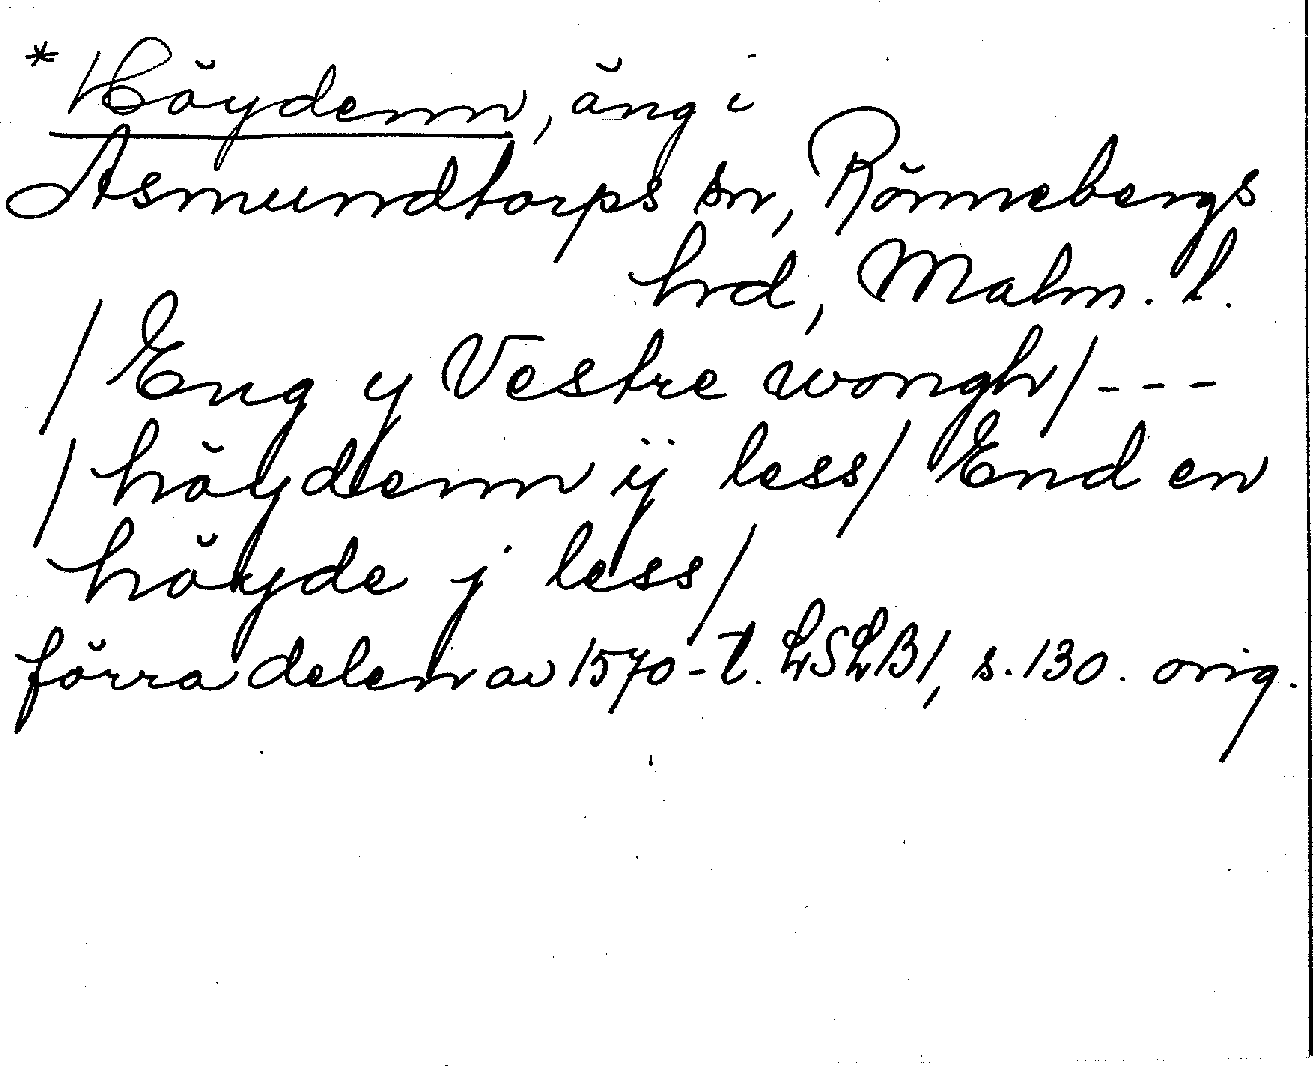 * Höydenn, äng i
Asmundtorps sn, Rönnebergs
hrd, Malm. l.
/ Eng y Vestre wongh/ - - -
/ höydenn ij less/ End en
höyde j less/
förra delen av 1570-t. LSLB1, s. 130. orig.